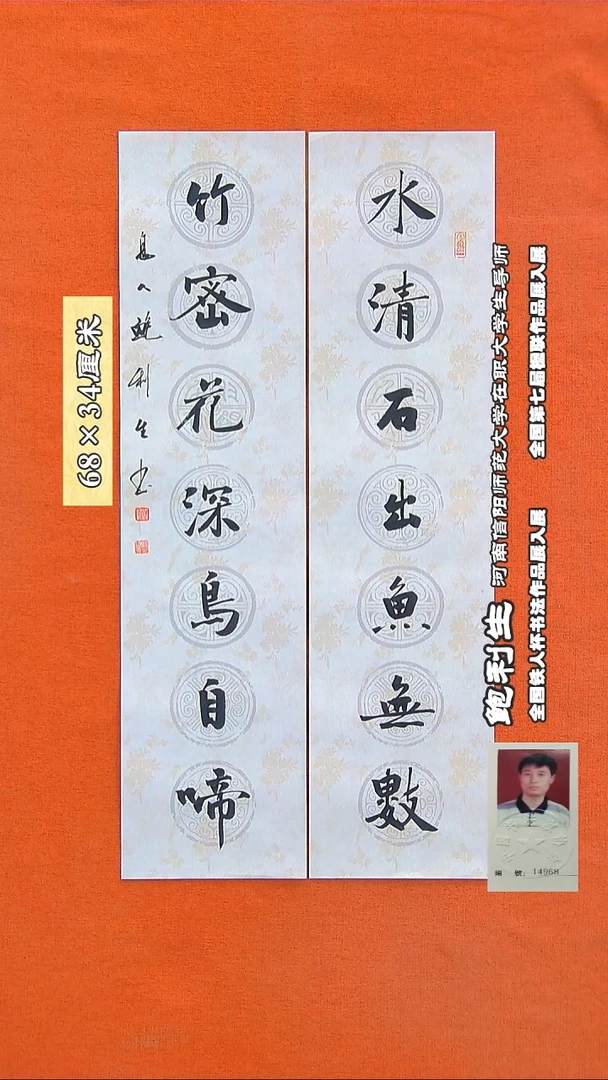 水清石出魚無數
竹密花深鳥自啼
息人鲍利生书
68×34厘米
鲍利生 河南信阳师范大学在职大学生导师
全国铁人杯书法作品展入展 全国第七届楹联作品展入展
編 號: 14968